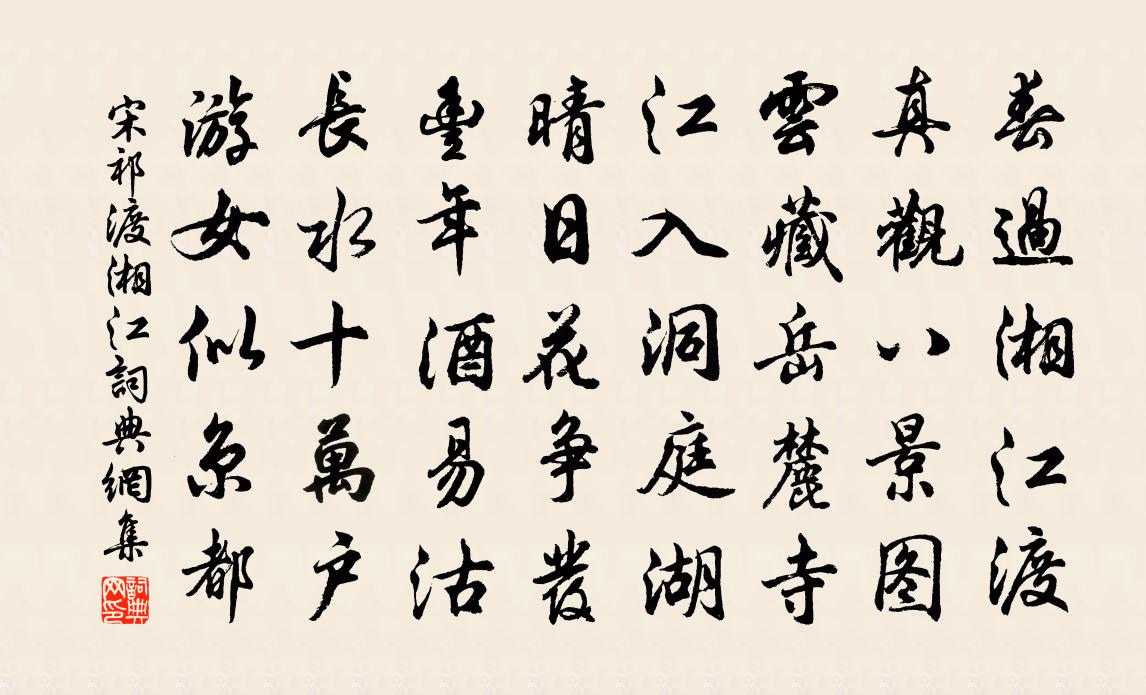 春過湘江渡
真觀八景图
雲藏岳麓寺
江入洞庭湖
晴日花争發
豊年酒易沽
長水十萬户
游女似京都
宋祁渡湘江詞典網集
詞典網印